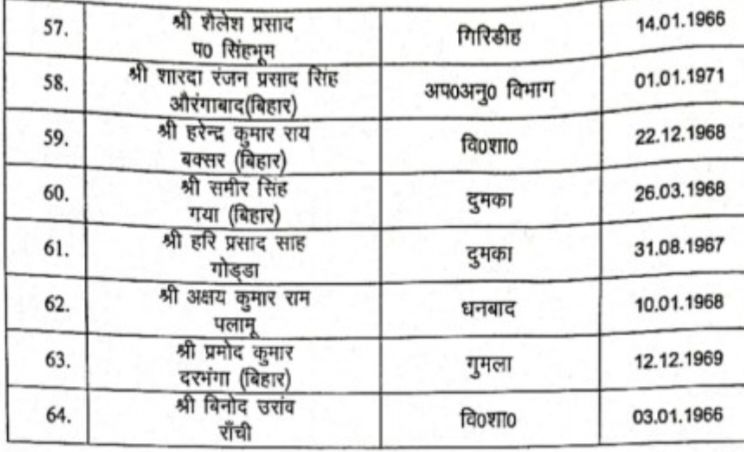 57. श्री शैलेश प्रसाद गिरिडीह 14.01.1966
प0 सिंहभूम
58. श्री शारदा रंजन प्रसाद सिंह अप0अनु0 विभाग 01.01.1971
औरंगाबाद(बिहार)
59. श्री हरेन्द्र कुमार राय वि0शा0 22.12.1968
बक्सर (बिहार)
60. श्री समीर सिंह दुमका 26.03.1968
गया (बिहार)
61. श्री हरि प्रसाद साह दुमका 31.08.1967
गोड्डा
62. श्री अक्षय कुमार राम धनबाद 10.01.1968
पलामू
63. श्री प्रमोद कुमार गुमला 12.12.1969
दरभंगा (बिहार)
64. श्री बिनोद उरांव वि0शा0 03.01.1966
राँची